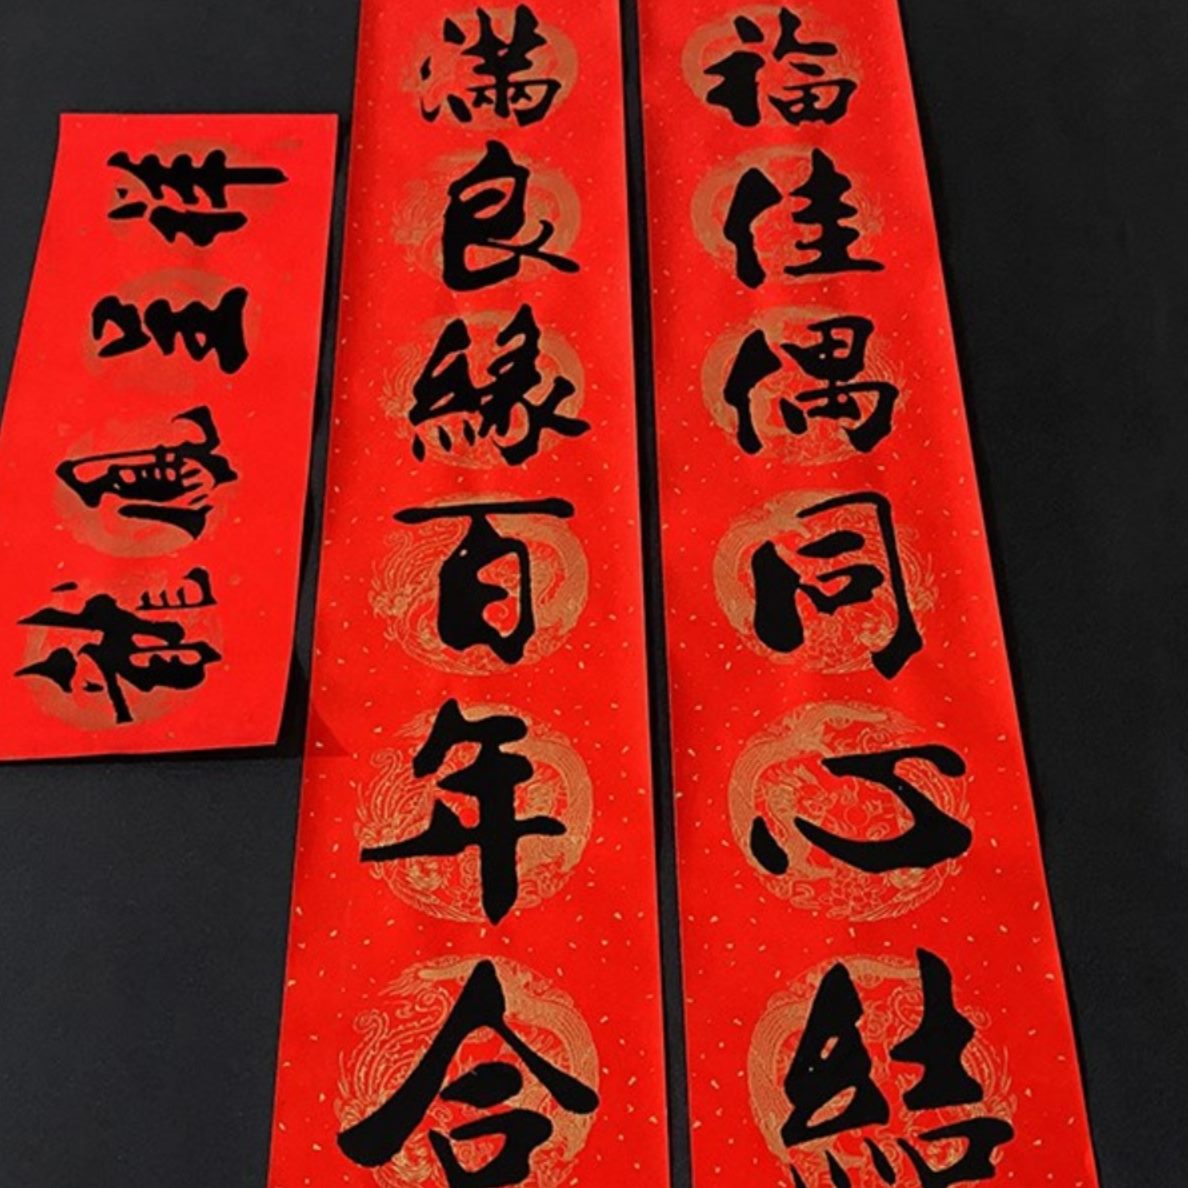 福佳偶同心結
滿良緣百年合
龍鳳呈祥